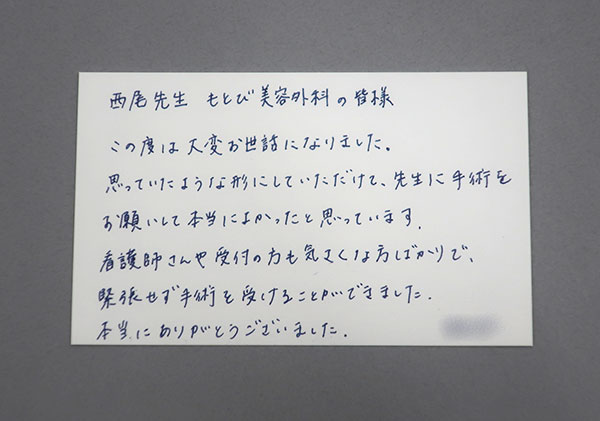 西尾先生 もとび美容外科の皆様
この度は大変お世話になりました。
思っていたような形にしていただけて、先生に手術を
お願いして本当によかったと思っています。
看護師さんや受付の方も気さくな方ばかりで、
緊張せず手術を受けることができました。
本当にありがとうございました。